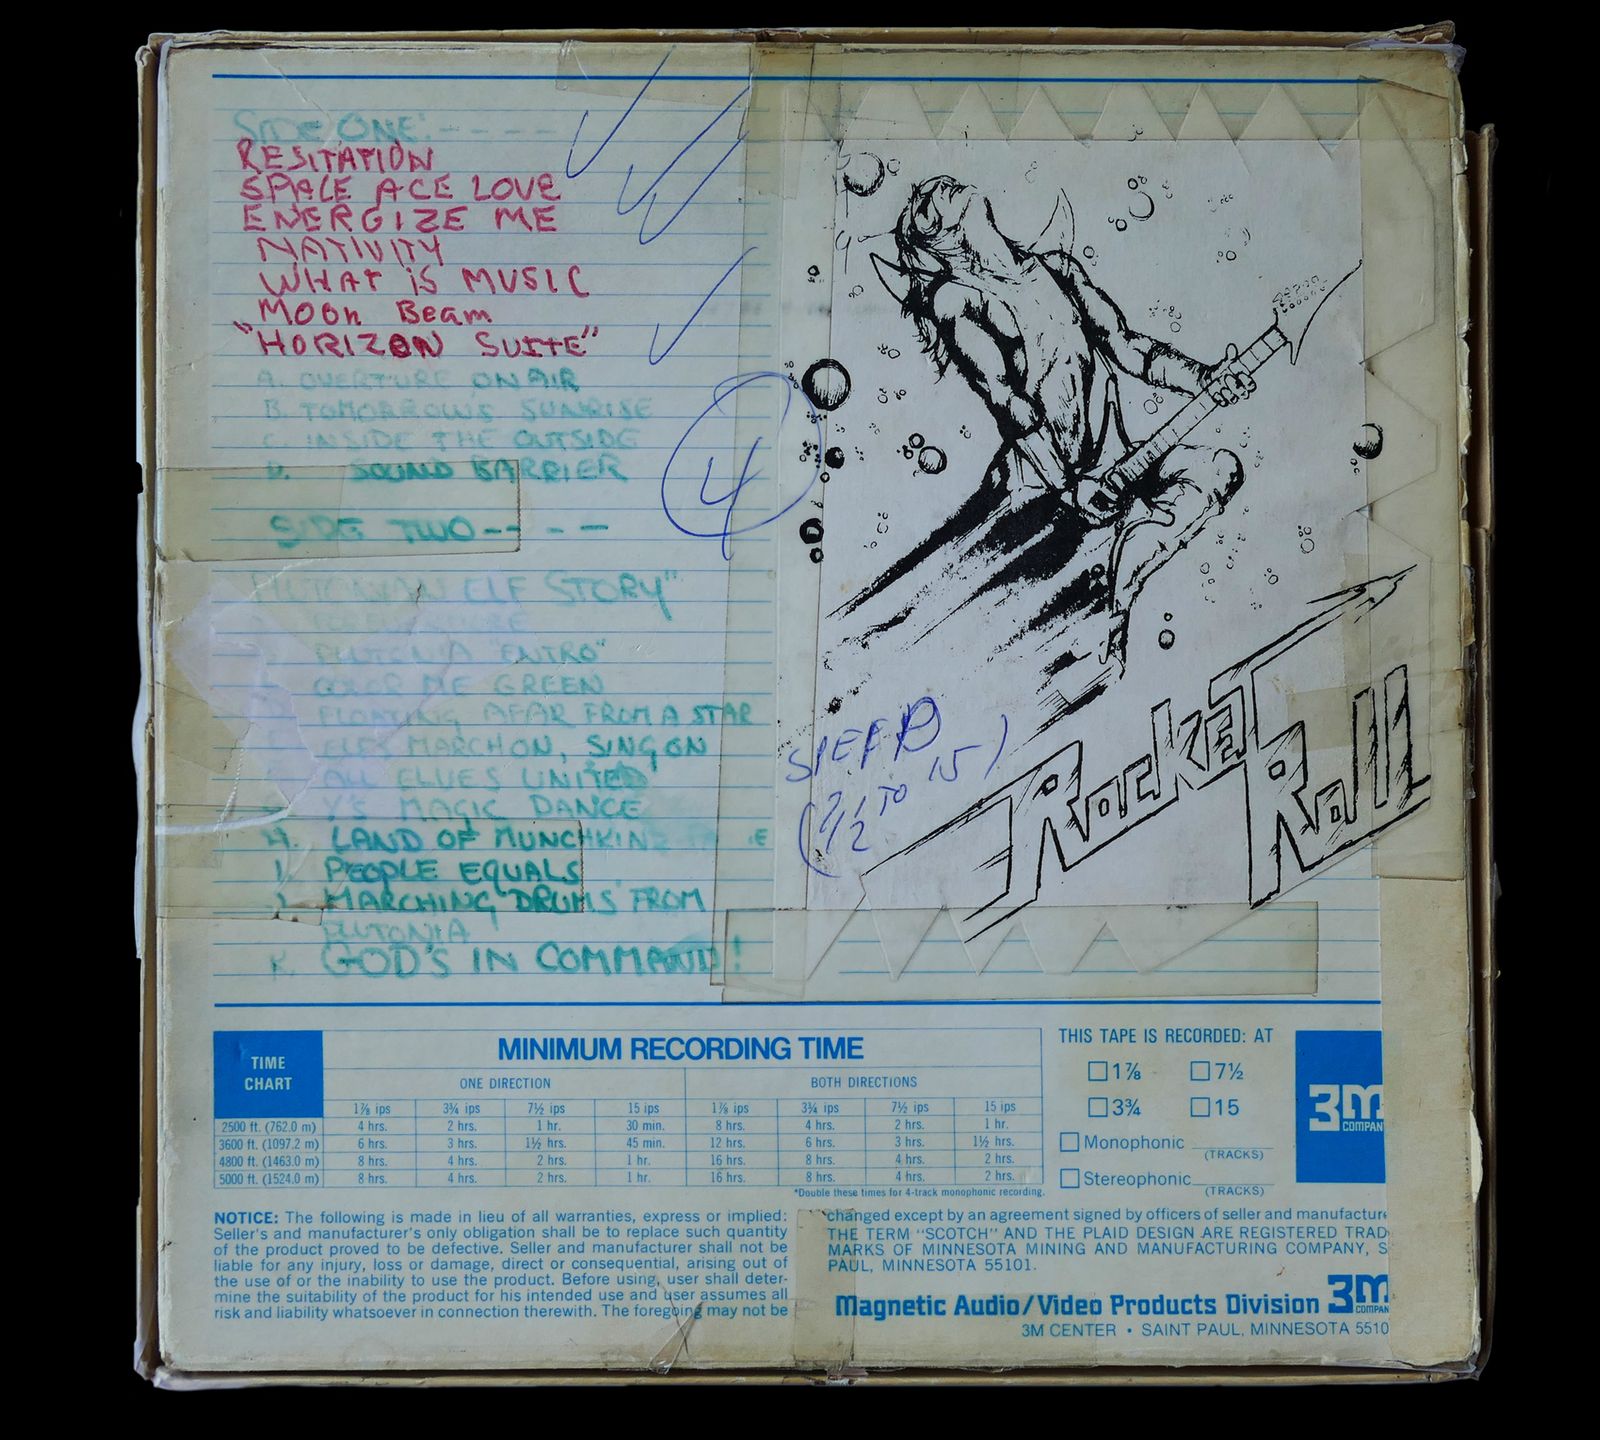 SIDE ONE: - - - -
RESITATION
SPACE ACE LOVE
ENERGIZE ME
NATIVITY
WHAT iS MUSIC
MOON Beam
"HORIZON SUITE"
A. OVERTURE ON AIR
B. TOMORROWS SUNRISE
C. INSIDE THE OUTSIDE
D. SOUND BARRIER
4
SIDE TWO - - - -
ELF STORY"
PLUTONIA "ENTRO"
COLOR ME GREEN
FLOATING AFAR FROM A STAR
ELFS MARCH ON, SING ON
ALL ELVES UNITED
Y'S MAGIC DANCE
H. LAND OF MUNCHKINS
I. PEOPLE EQUALS
J. MARCHING DRUMS FROM
PLUTONIA
K. GOD'S IN COMMAND!
SPEED
(7½ TO 15)
RockeT Roll
TIME CHART
MINIMUM RECORDING TIME
ONE DIRECTION BOTH DIRECTIONS
1⅞ ips 3¾ ips 7½ ips 15 ips 1⅞ ips 3¾ ips 7½ ips 15 ips
2500 ft. (762.0 m) 4 hrs. 2 hrs. 1 hr. 30 min. 8 hrs. 4 hrs. 2 hrs. 1 hr.
3600 ft. (1097.2 m) 6 hrs. 3 hrs. 1½ hrs. 45 min. 12 hrs. 6 hrs. 3 hrs. 1½ hrs.
4800 ft. (1463.0 m) 8 hrs. 4 hrs. 2 hrs. 1 hr. 16 hrs. 8 hrs. 4 hrs. 2 hrs.
5000 ft. (1524.0 m) 8 hrs. 4 hrs. 2 hrs. 1 hr. 16 hrs. 8 hrs. 4 hrs. 2 hrs.
*Double these times for 4-track monophonic recording.
THIS TAPE IS RECORDED: AT
1⅞ 7½
3¾ 15
Monophonic
(TRACKS)
Stereophonic
(TRACKS)
3M
COMPANY
NOTICE: The following is made in lieu of all warranties, express or implied:
Seller's and manufacturer's only obligation shall be to replace such quantity
of the product proved to be defective. Seller and manufacturer shall not be
liable for any injury, loss or damage, direct or consequential, arising out of
the use of or the inability to use the product. Before using, user shall deter-
mine the suitability of the product for his intended use and user assumes all
risk and liability whatsoever in connection therewith. The foregoing may not be
changed except by an agreement signed by officers of seller and manufacture
THE TERM "SCOTCH" AND THE PLAID DESIGN ARE REGISTERED TRAD
MARKS OF MINNESOTA MINING AND MANUFACTURING COMPANY, S
PAUL, MINNESOTA 55101.
Magnetic Audio/Video Products Division 3M
COMPAN
3M CENTER • SAINT PAUL, MINNESOTA 5510